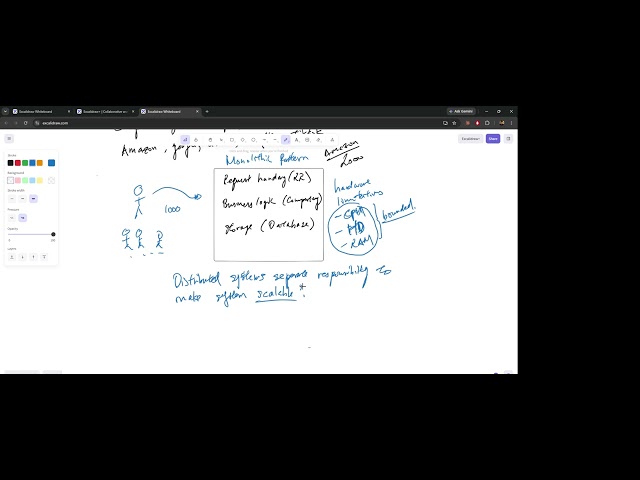 Excalidraw Whiteboard
Excalidraw+ | Collaborative w
Excalidraw Whiteboard
Ask Gemini
excalidraw.com
Stroke
Background
Stroke width
Pressure
Opacity
Layers
Excalidraw+
Share
Amazon,
Amazon
2000
Monolithic Pattern
Request handling (RR)
Business logic (Computing)
Storage (Database)
1000
hardware
limitations
- CPU
- H/D
- RAM
bounded.
Distributed systems separate responsibility to
make system scalable